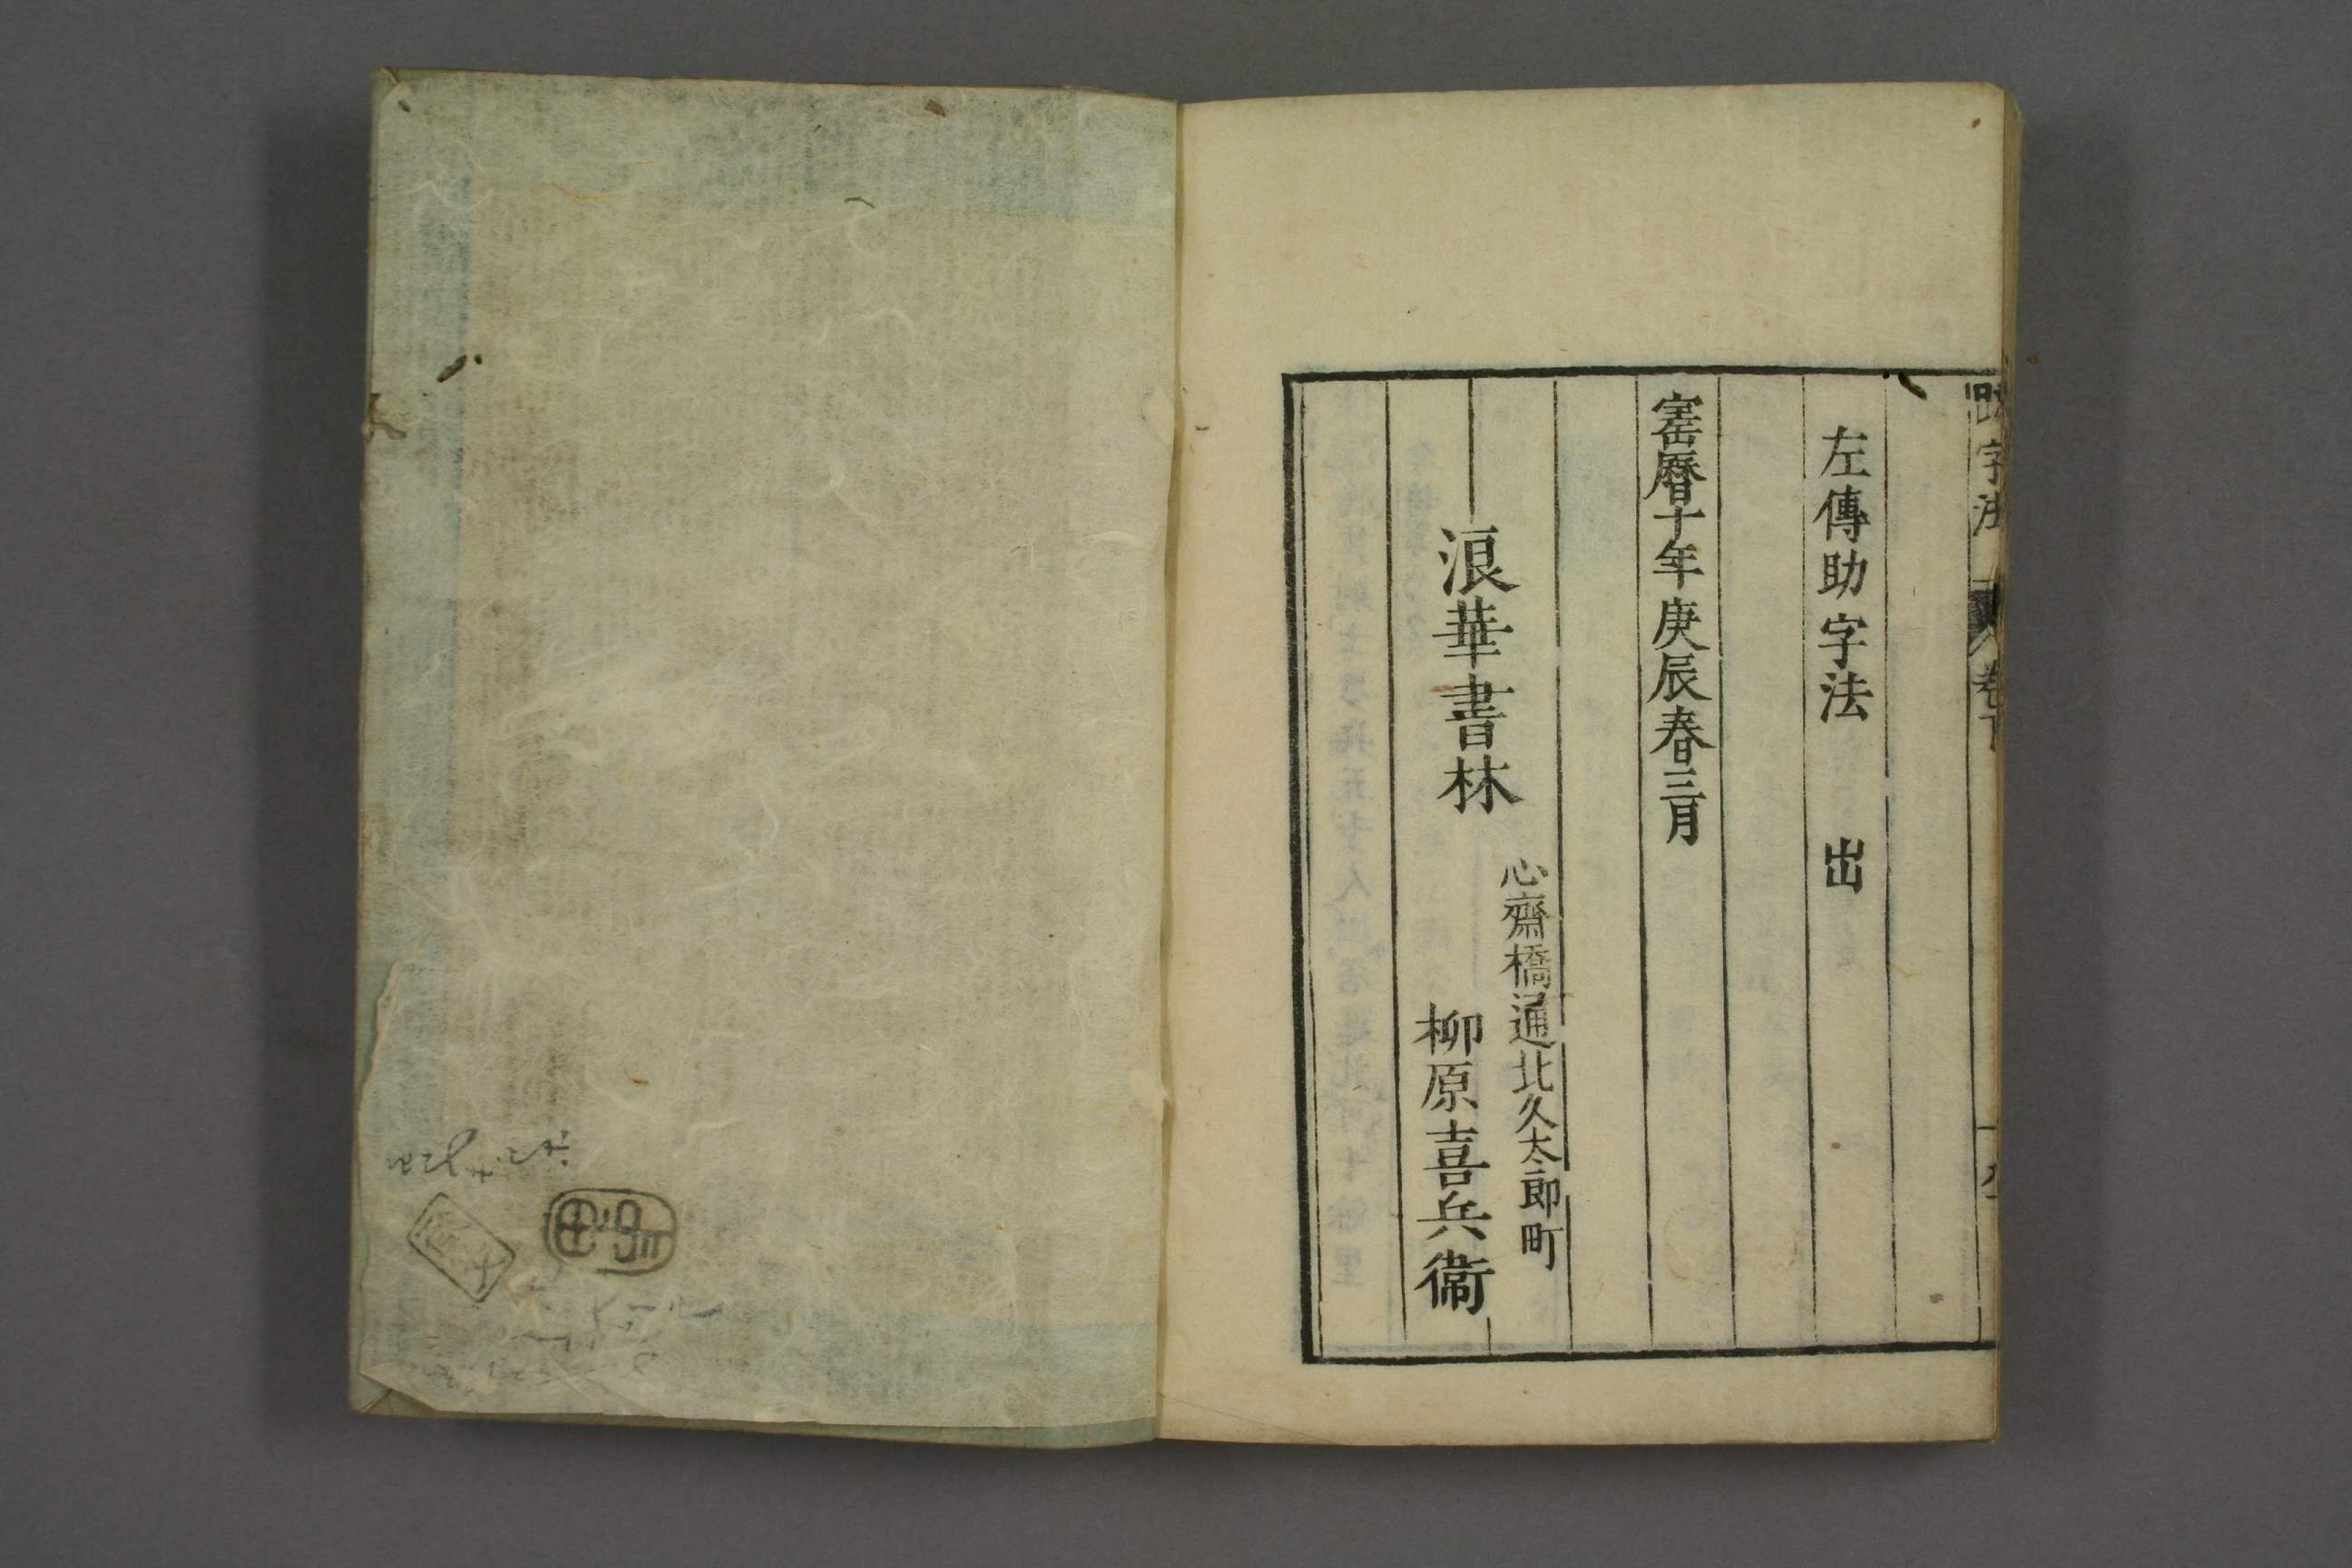 字法 卷下
左傳助字法 出
寚曆十年庚辰春三月
浪華書林
心齋橋通北久太郎町
柳原喜兵衞